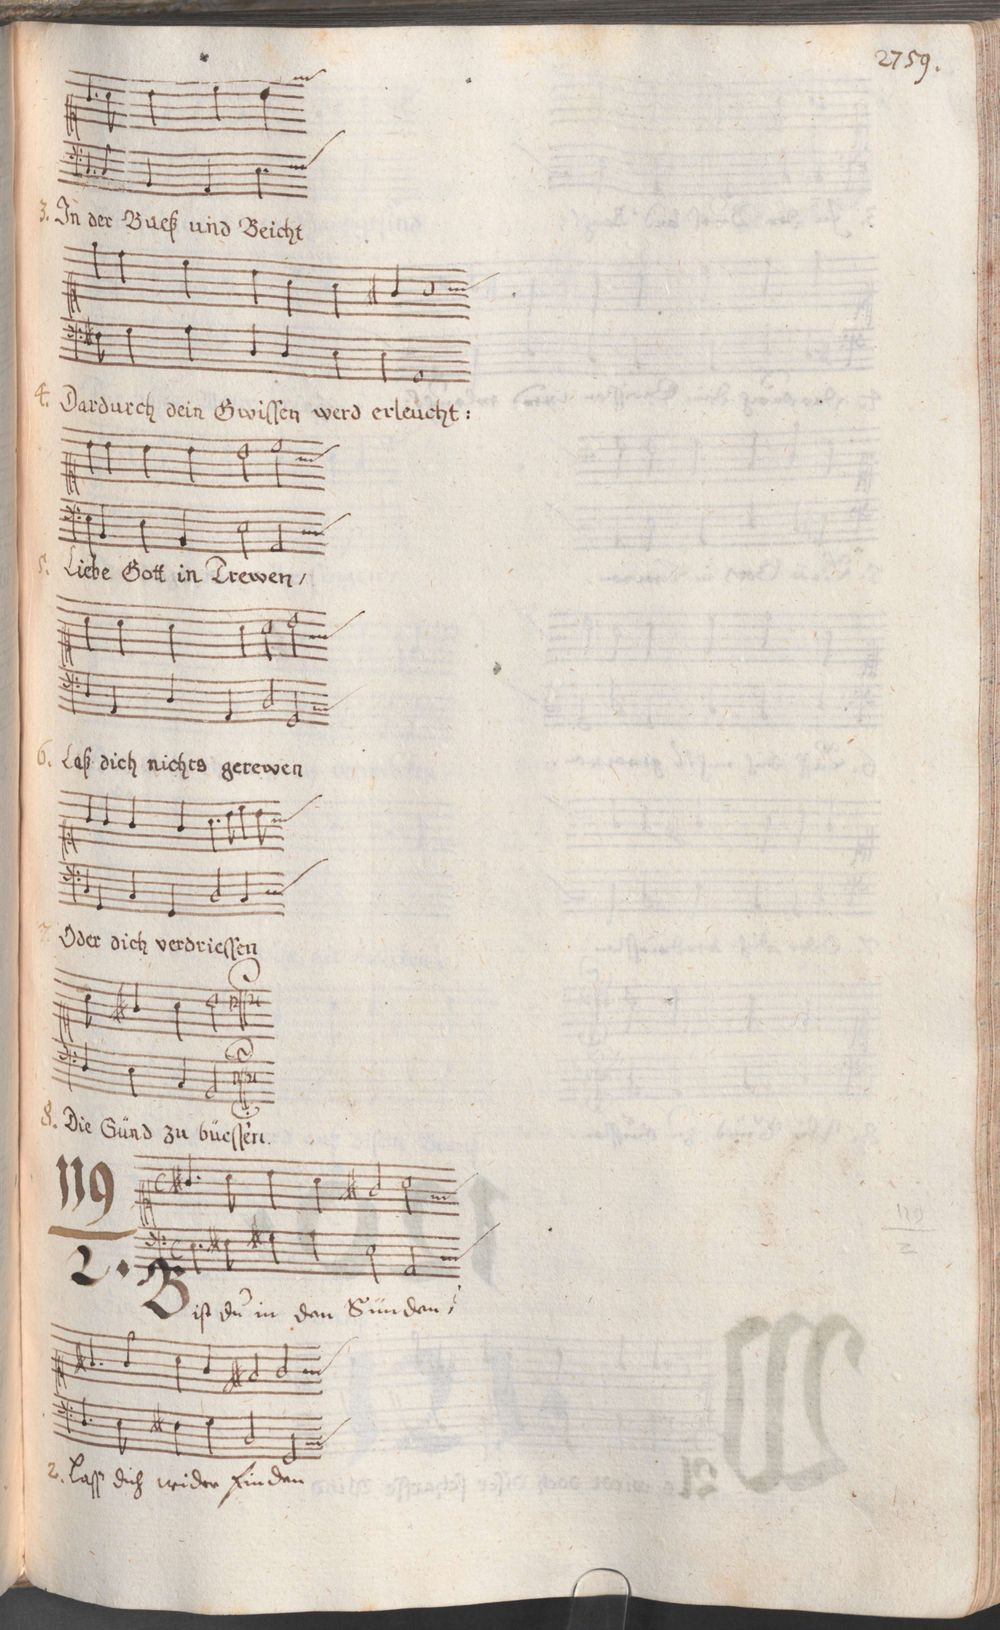 2759.
3. In der Bueß und Beicht
4. Dardurch dein Gwissen werd erleucht:
5. Liebe Gott in Trewen,
6. Laß dich nichts gerewen
7. Oder dich verdriessen
8. Die Sünd zu büessen.
119
2.
Bist du in den Sünden,
2. Lass dich wider finden